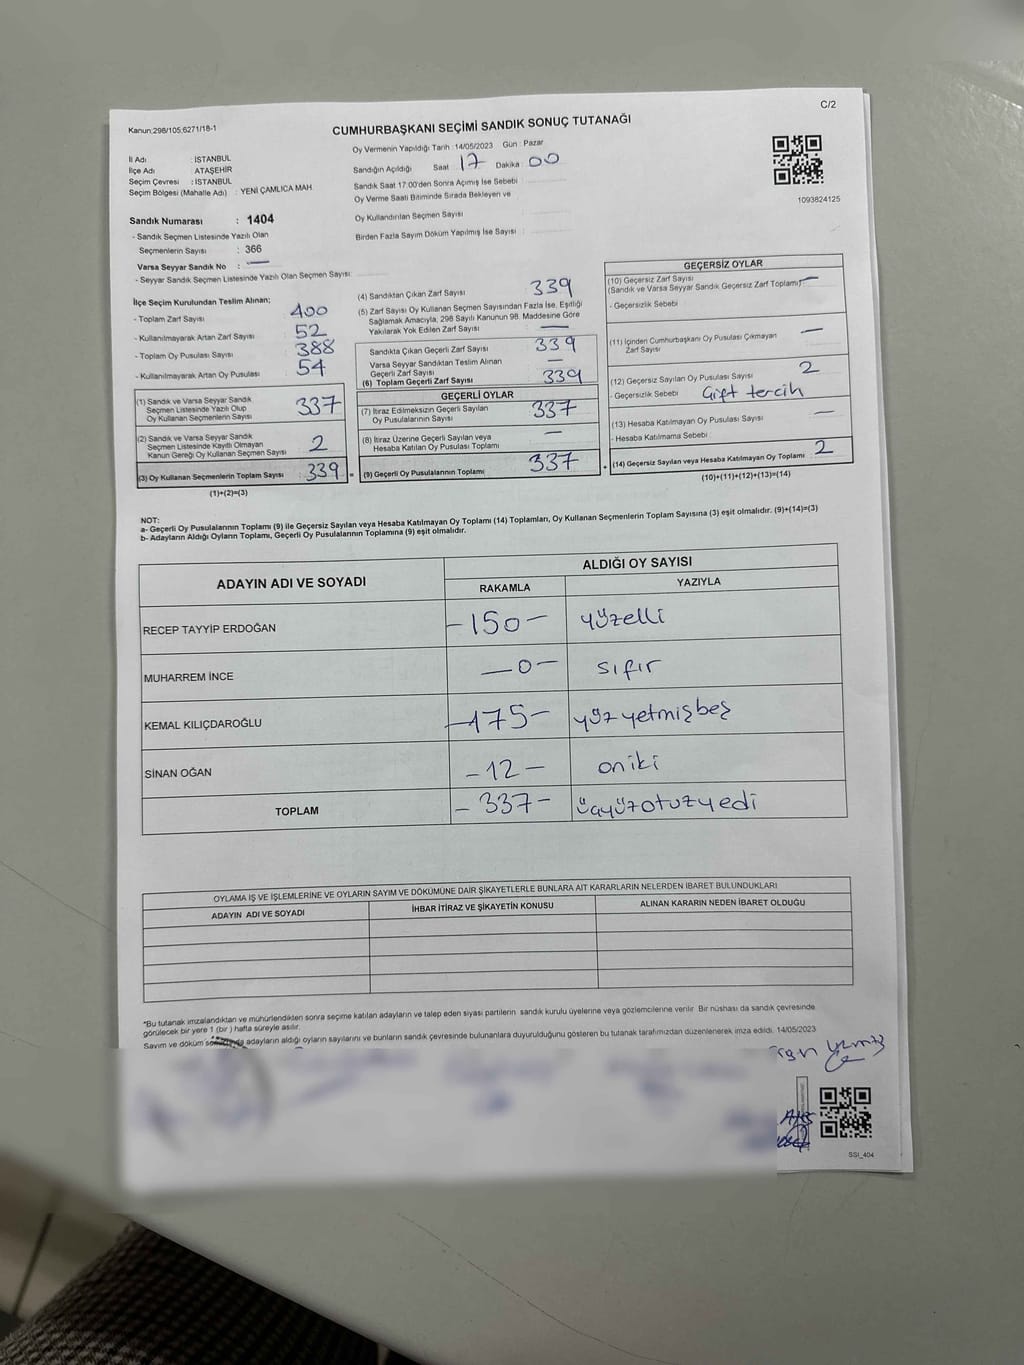 C/2
Kanun:298/105;6271/18-1
CUMHURBAŞKANI SEÇİMİ SANDIK SONUÇ TUTANAĞI
İl Adı : İSTANBUL
İlçe Adı : ATAŞEHİR
Seçim Çevresi : İSTANBUL
Seçim Bölgesi (Mahalle Adı) : YENİ ÇAMLICA MAH
Oy Vermenin Yapıldığı Tarih :14/05/2023 Gün : Pazar
Sandığın Açıldığı Saat 17 Dakika 00
Sandık Saat 17:00'den Sonra Açılmış İse Sebebi
Oy Verme Saati Bitiminde Sırada Bekleyen ve
Oy Kullandırılan Seçmen Sayısı
Birden Fazla Sayım Döküm Yapılmış İse Sayısı :
1093824125
Sandık Numarası : 1404
- Sandık Seçmen Listesinde Yazılı Olan
Seçmenlerin Sayısı : 366
Varsa Seyyar Sandık No : —
- Seyyar Sandık Seçmen Listesinde Yazılı Olan Seçmen Sayısı:
İlçe Seçim Kurulundan Teslim Alınan;
- Toplam Zarf Sayısı 400
- Kullanılmayarak Artan Zarf Sayısı 52
- Toplam Oy Pusulası Sayısı 388
- Kullanılmayarak Artan Oy Pusulası 54
(1) Sandık ve Varsa Seyyar Sandık
Seçmen Listesinde Yazılı Olup
Oy Kullanan Seçmenlerin Sayısı 337
(2) Sandık ve Varsa Seyyar Sandık
Seçmen Listesinde Kayıtlı Olmayan
Kanun Gereği Oy Kullanan Seçmen Sayısı 2
(3) Oy Kullanan Seçmenlerin Toplam Sayısı 339
(1)+(2)=(3)
(4) Sandıktan Çıkan Zarf Sayısı 339
(5) Zarf Sayısı Oy Kullanan Seçmen Sayısından Fazla İse, Eşitliği
Sağlamak Amacıyla, 298 Sayılı Kanunun 98. Maddesine Göre
Yakılarak Yok Edilen Zarf Sayısı —
Sandıkta Çıkan Geçerli Zarf Sayısı 339
Varsa Seyyar Sandıktan Teslim Alınan
Geçerli Zarf Sayısı —
(6) Toplam Geçerli Zarf Sayısı 339
GEÇERLİ OYLAR
(7) İtiraz Edilmeksizin Geçerli Sayılan
Oy Pusulalarının Sayısı 337
(8) İtiraz Üzerine Geçerli Sayılan veya
Hesaba Katılan Oy Pusulası Toplamı —
= (9) Geçerli Oy Pusulalarının Toplamı 337
GEÇERSİZ OYLAR
(10) Geçersiz Zarf Sayısı
(Sandık ve Varsa Seyyar Sandık Geçersiz Zarf Toplamı) —
- Geçersizlik Sebebi
(11) İçinden Cumhurbaşkanı Oy Pusulası Çıkmayan
Zarf Sayısı —
(12) Geçersiz Sayılan Oy Pusulası Sayısı 2
- Geçersizlik Sebebi Çift tercih
(13) Hesaba Katılmayan Oy Pusulası Sayısı —
- Hesaba Katılmama Sebebi
+ (14) Geçersiz Sayılan veya Hesaba Katılmayan Oy Toplamı 2
(10)+(11)+(12)+(13)=(14)
NOT:
a- Geçerli Oy Pusulalarının Toplamı (9) ile Geçersiz Sayılan veya Hesaba Katılmayan Oy Toplamı (14) Toplamları, Oy Kullanan Seçmenlerin Toplam Sayısına (3) eşit olmalıdır. (9)+(14)=(3)
b- Adayların Aldığı Oyların Toplamı, Geçerli Oy Pusulalarının Toplamına (9) eşit olmalıdır.
ADAYIN ADI VE SOYADI
ALDIĞI OY SAYISI
RAKAMLA YAZIYLA
RECEP TAYYİP ERDOĞAN -150- yüzelli
MUHARREM İNCE -0- sıfır
KEMAL KILIÇDAROĞLU -175- yüzyetmişbeş
SİNAN OĞAN -12- oniki
TOPLAM -337- üçyüzotuzyedi
OYLAMA İŞ VE İŞLEMLERİNE VE OYLARIN SAYIM VE DÖKÜMÜNE DAİR ŞİKAYETLERLE BUNLARA AİT KARARLARIN NELERDEN İBARET BULUNDUKLARI
ADAYIN ADI VE SOYADI İHBAR İTİRAZ VE ŞİKAYETİN KONUSU ALINAN KARARIN NEDEN İBARET OLDUĞU
*Bu tutanak imzalandıktan ve mühürlendikten sonra seçime katılan adayların ve talep eden siyasi partilerin sandık kurulu üyelerine veya gözlemcilerine verilir. Bir nüshası da sandık çevresinde
görülecek bir yere 1 (bir ) hafta süreyle asılır.
Sayım ve döküm sonucunda adayların aldığı oyların sayılarını ve bunların sandık çevresinde bulunanlara duyurulduğunu gösteren bu tutanak tarafımızdan düzenlenerek imza edildi. 14/05/2023
SSI_404